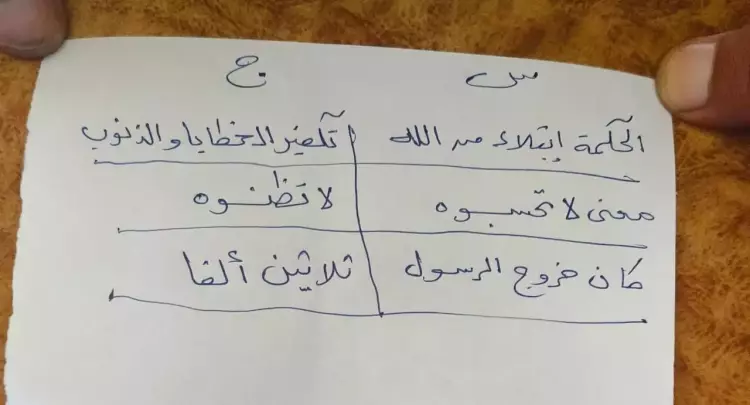 س ج
الحكمة إبتلاء من الله تكفير الخطايا والذنوب
معنى لا تحسبوه لا تظنوه
كان خروج الرسول ثلاثين ألفا